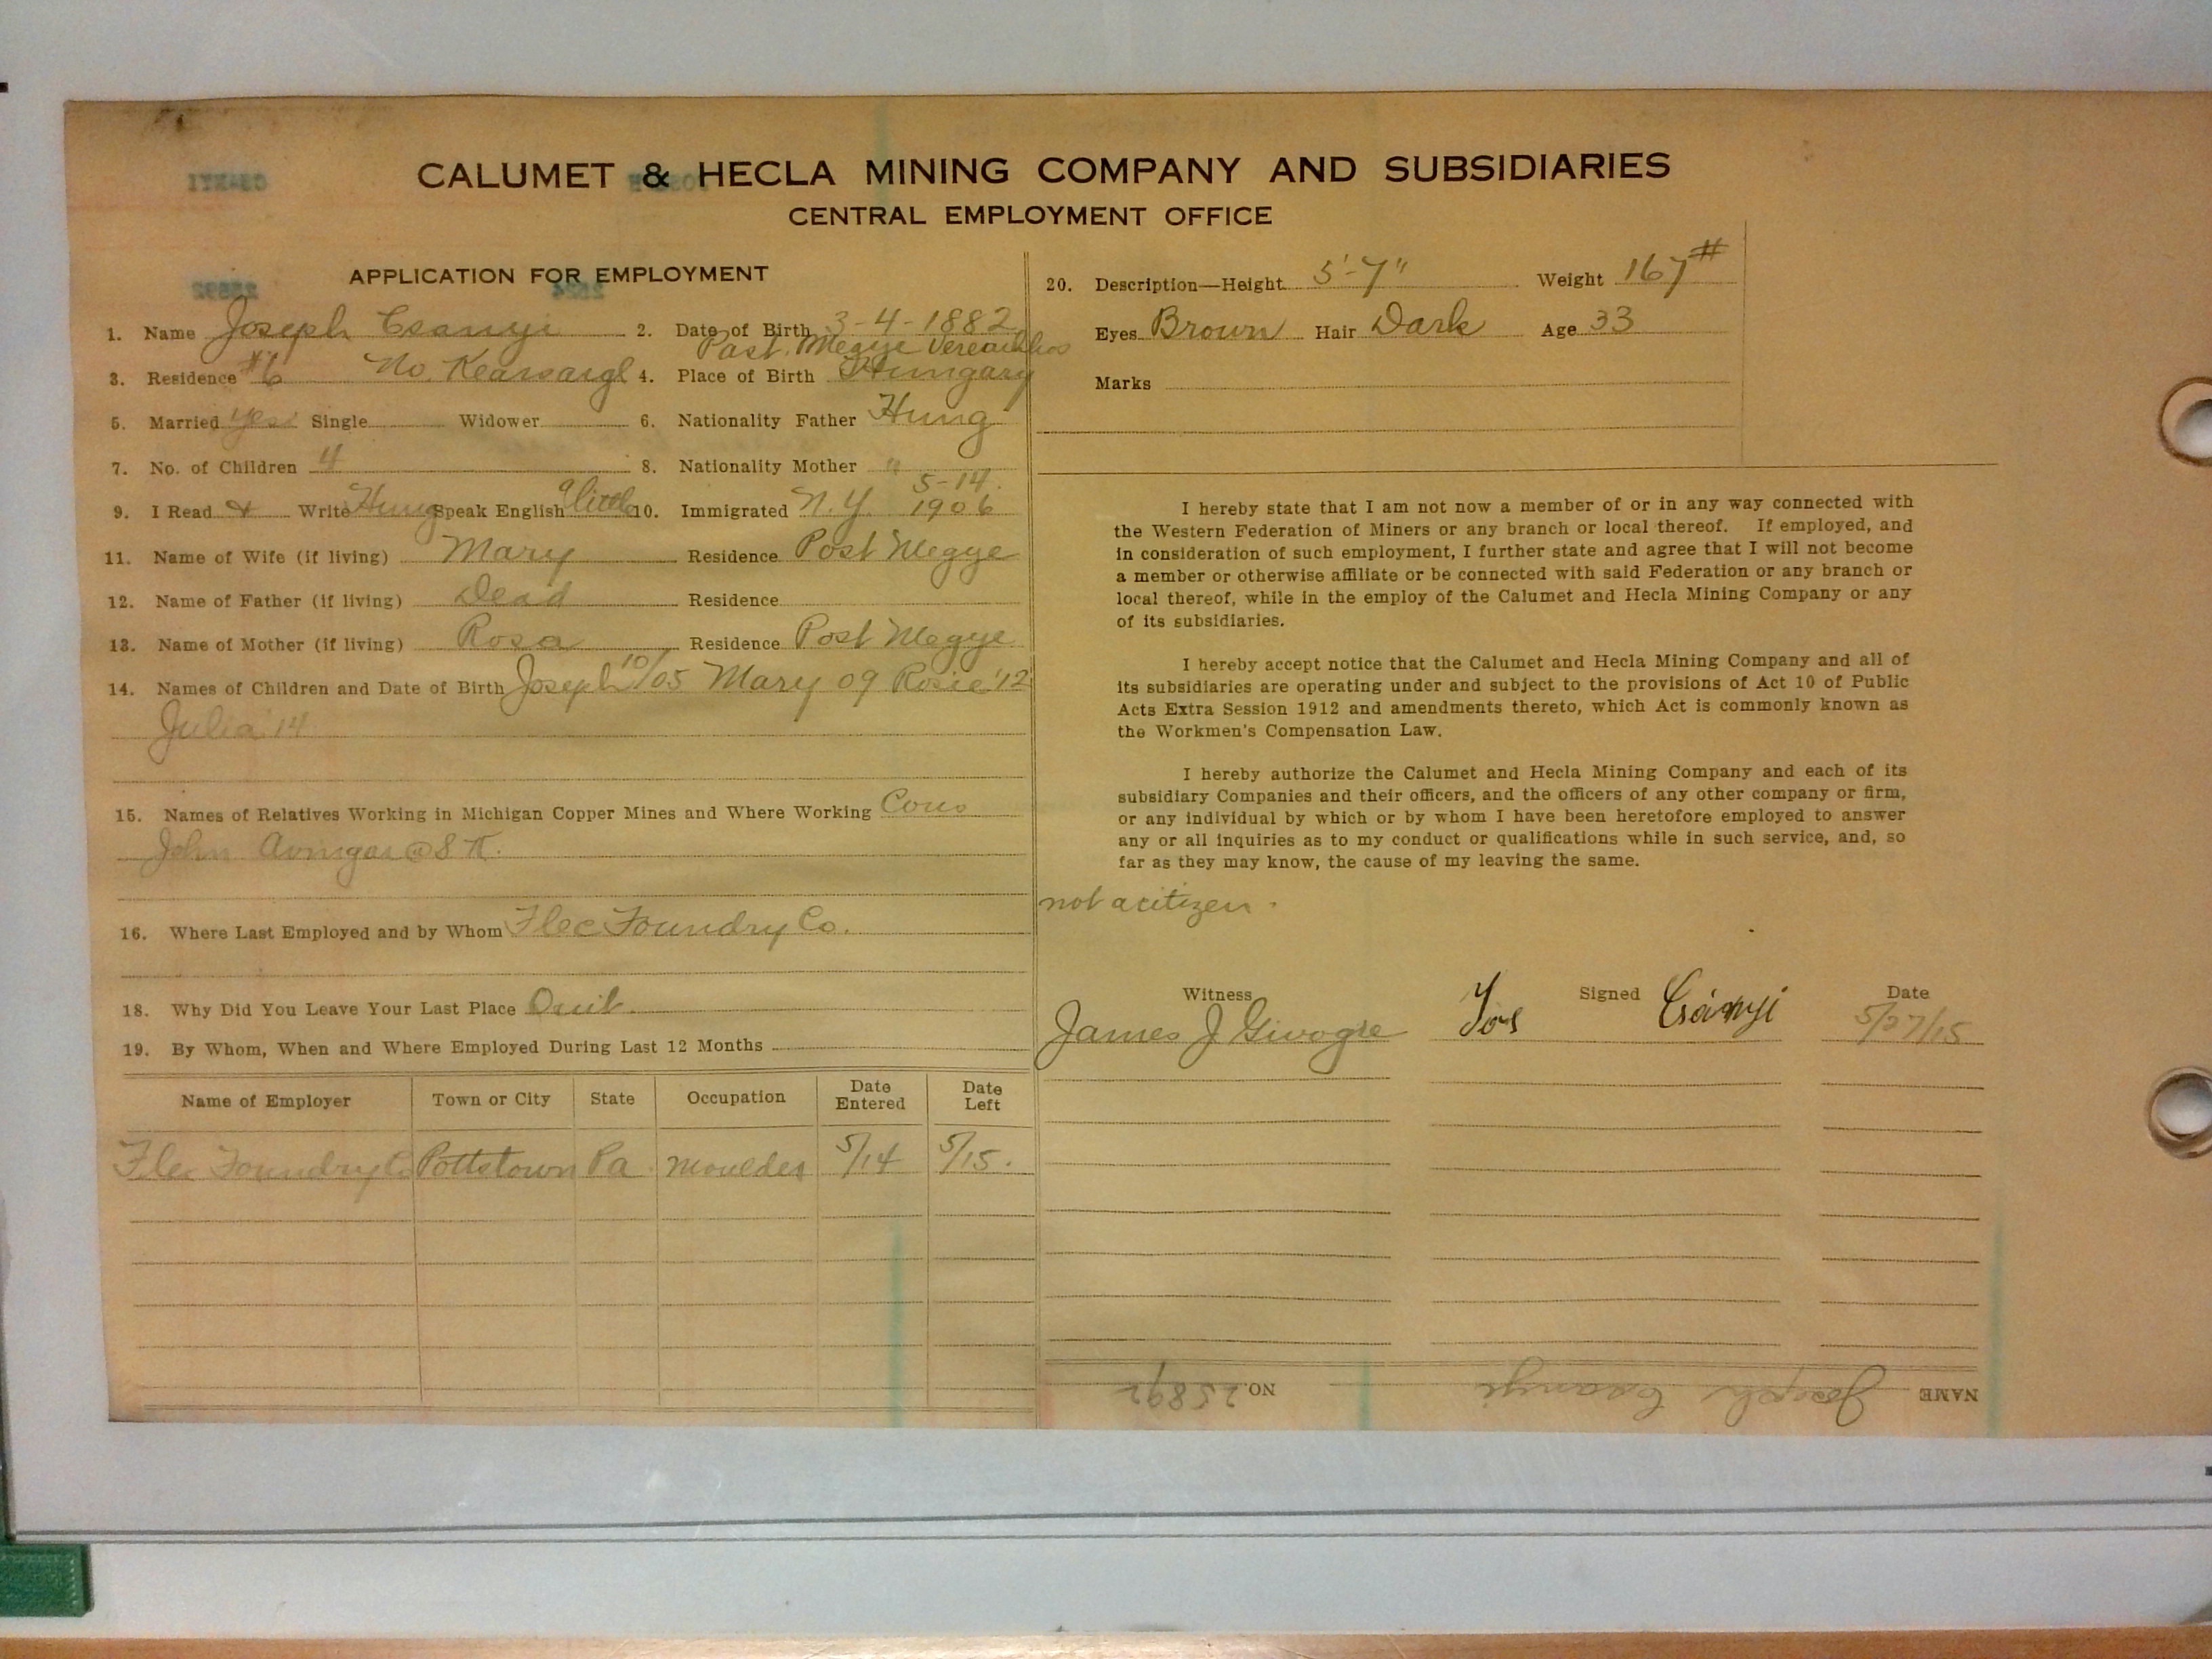 CALUMET & HECLA MINING COMPANY AND SUBSIDIARIES
CENTRAL EMPLOYMENT OFFICE
APPLICATION FOR EMPLOYMENT
1. Name Joseph Csanyi 2. Date of Birth 3-4-1882
Past. Megye
3. Residence #6 No. Kearsarge 4. Place of Birth Hungary
5. Married yes Single Widower 6. Nationality Father Hung
7. No. of Children 4 8. Nationality Mother "
5-14.
9. I Read & Write Hung Speak English a little 10. Immigrated N.Y. 1906
11. Name of Wife (if living) Mary Residence Post Megye
12. Name of Father (if living) Dead Residence
13. Name of Mother (if living) Rosa Residence Post Megye
14. Names of Children and Date of Birth Joseph 10/05 Mary 09 Rosie '12
Julia '14
15. Names of Relatives Working in Michigan Copper Mines and Where Working Cous
John @ S K.
16. Where Last Employed and by Whom Flec Foundry Co.
18. Why Did You Leave Your Last Place Quit.
19. By Whom, When and Where Employed During Last 12 Months
Name of Employer Town or City State Occupation Date Entered Date Left
Flec Foundry Co Pottstown Pa. Moulder 5/14 5/15.
20. Description—Height 5'-7" Weight 167#
Eyes Brown Hair Dark Age 33
Marks
I hereby state that I am not now a member of or in any way connected with
the Western Federation of Miners or any branch or local thereof. If employed, and
in consideration of such employment, I further state and agree that I will not become
a member or otherwise affiliate or be connected with said Federation or any branch or
local thereof, while in the employ of the Calumet and Hecla Mining Company or any
of its subsidiaries.
I hereby accept notice that the Calumet and Hecla Mining Company and all of
its subsidiaries are operating under and subject to the provisions of Act 10 of Public
Acts Extra Session 1912 and amendments thereto, which Act is commonly known as
the Workmen's Compensation Law.
I hereby authorize the Calumet and Hecla Mining Company and each of its
subsidiary Companies and their officers, and the officers of any other company or firm,
or any individual by which or by whom I have been heretofore employed to answer
any or all inquiries as to my conduct or qualifications while in such service, and, so
far as they may know, the cause of my leaving the same.
not a citizen.
Witness Signed Date
James J Givogre Jos Csányi 5/27/15
NAME Joseph Csanyi NO. 25892